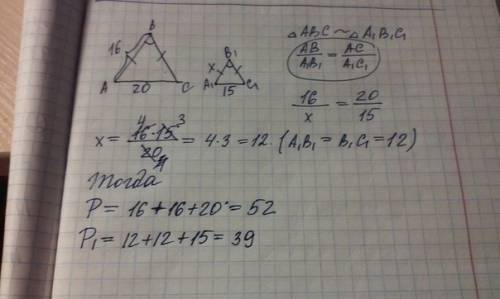 B
16
A 20 C
B₁
x
A₁ 15 C₁
△ABC ~ △A₁B₁C₁
AB/A₁B₁ = AC/A₁C₁
16/x = 20/15
x = 16·15/20 = 4·3 = 12. (A₁B₁ = B₁C₁ = 12)
4 3 4
Тогда
P = 16 + 16 + 20 = 52
P₁ = 12 + 12 + 15 = 39